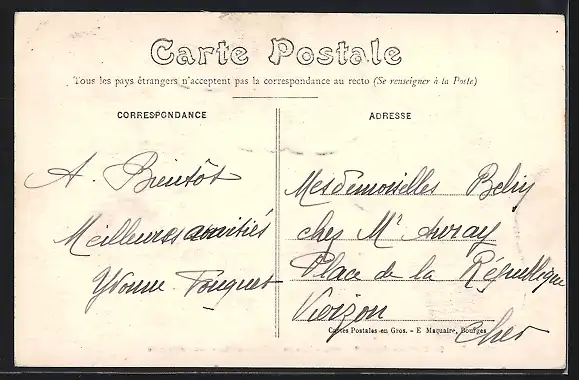 Carte Postale
Tous les pays étrangers n'acceptent pas la correspondance au recto (Se renseigner à la Poste)
CORRESPONDANCE
A. Bientôt
Meilleures amitiés
Yvonne Fouquet
ADRESSE
Mesdemoiselles
chez Mr Auray
Place de la République
Vierzon
Cher
Cartes Postales en Gros. - E Maquaire, Bourges